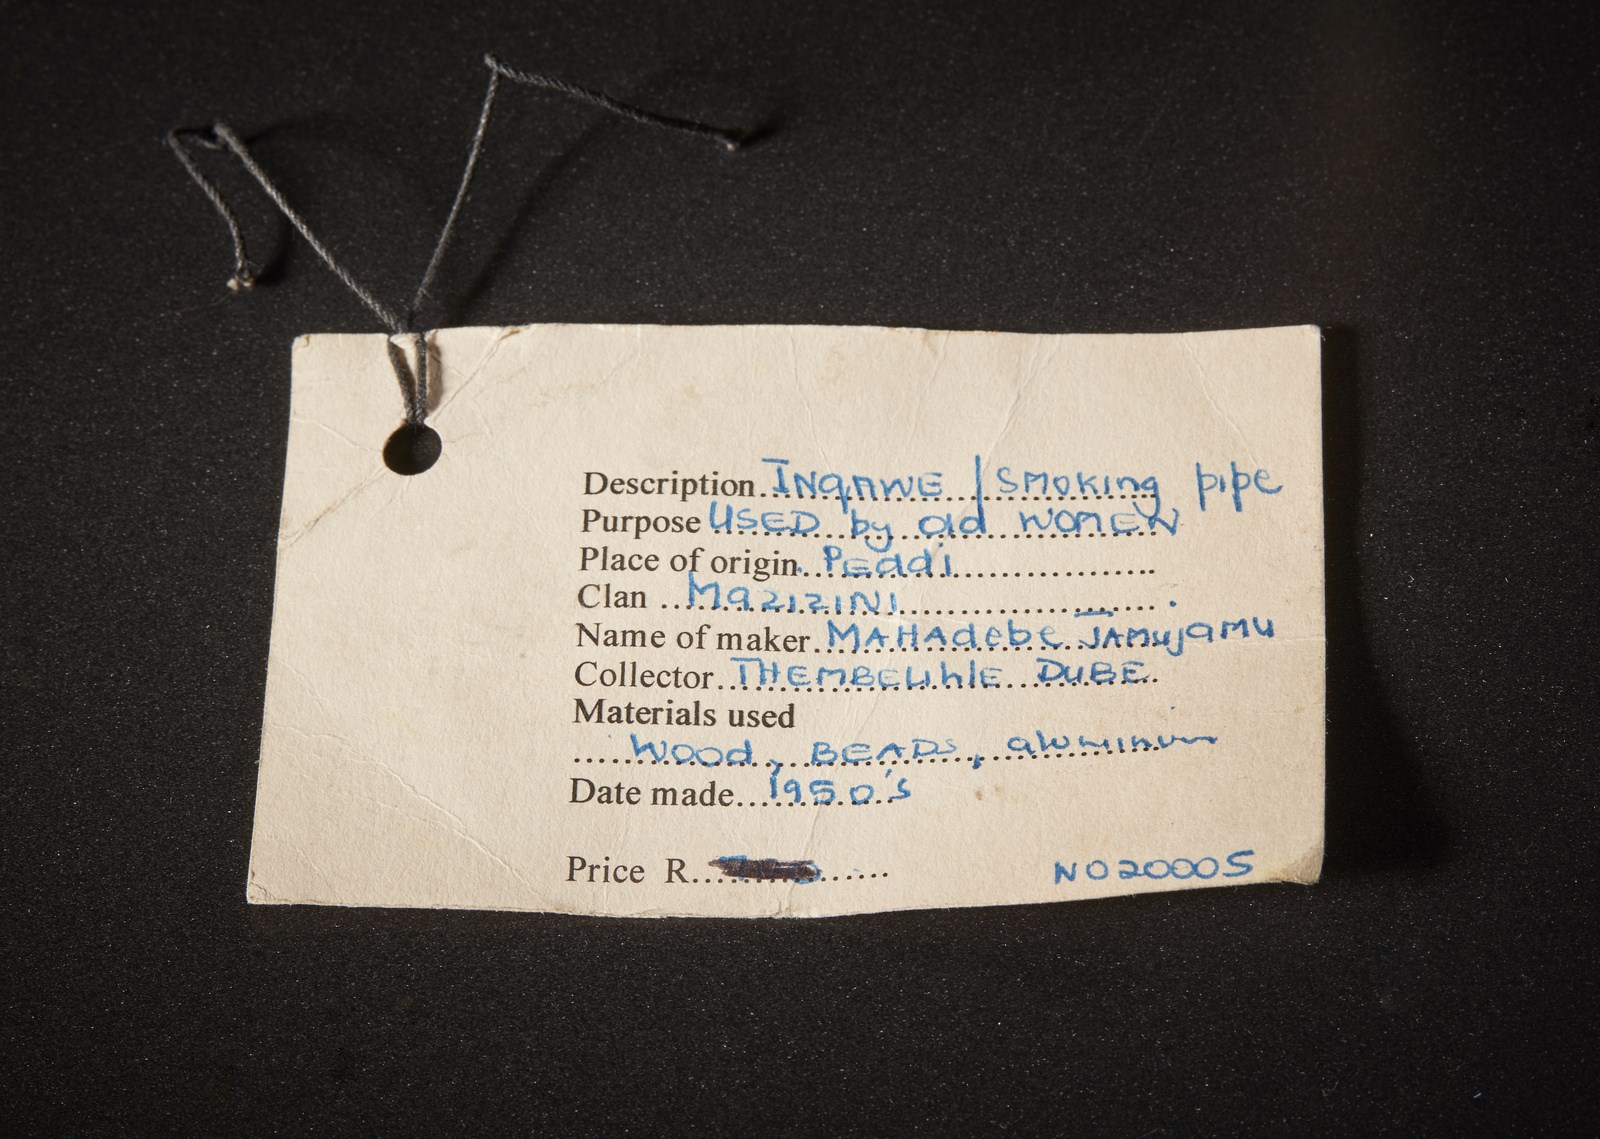 Description..INQAWE / SMOKING pipe
Purpose USED by old WOMEN
Place of origin. Peddi
Clan .. MAZIZINI
Name of maker. MAHAdebe JAMujAMU
Collector. THEMBELIhlE DUBE.
Materials used
Wood, BEADS, aluminum
Date made... 1950's
Price R.
NO20005